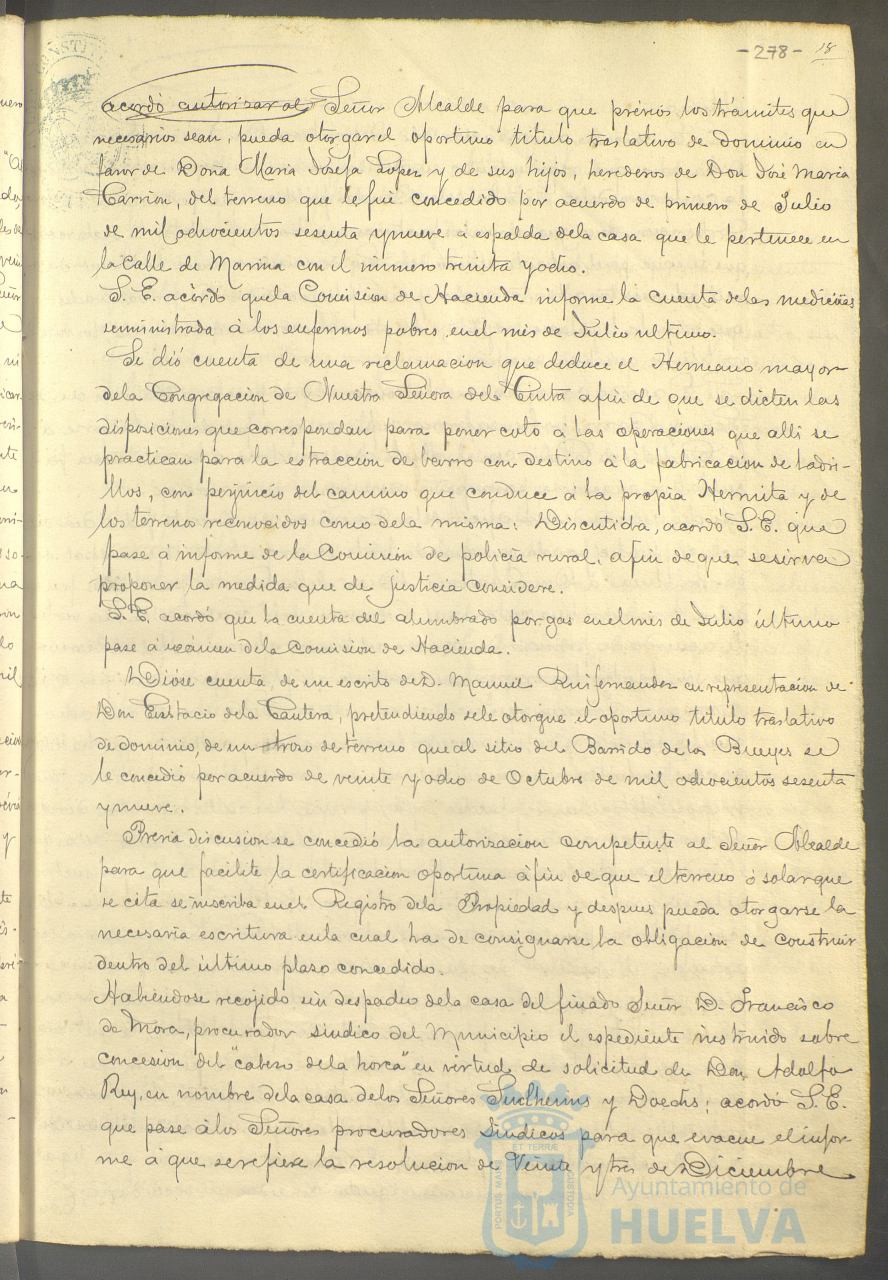 - 278 - 18
acordó autorizar al Señor Alcalde para que prévios los trámites que
necesarios sean, pueda otorgar el oportuno titulo traslativo de dominio en
favor de Doña Maria Josefa Lopez y de sus hijos, herederos de Don José Maria
Carrion, del terreno que le fué concedido por acuerdo de primero de Julio
de mil ochocientos sesenta y nueve á espalda de la casa que le pertenece en
la Calle de Marina con el numero treinta y ocho.
S. E. acordó que la Comision de Hacienda informe la cuenta de las medicinas
seministrada á los enfermos pobres en el mes de Julio ultimo.
Se dió cuenta de una reclamacion que deduce el Hermano mayor
de la Congregacion de Nuestra Señora de la Cinta afin de que se dicten las
disposiciones que correspondan para poner coto á las operaciones que alli se
practican para la estracción de barro con destino á la fabricacion de ladri-
llos, con perjuicio del camino que conduce á la propia Hermita y de
los terrenos reconocidos como de la misma: Discutida, acordó S. E. que
pase á informe de la Comision de policia rural, afin de que se sirva
proponer la medida que de justicia considere.
S. E. acordó que la cuenta del alumbrado por gas en el mes de Julio último
pase á exámen de la Comision de Hacienda.
Dióse cuenta, de un escrito de D. Manuel Ruifernandez en representacion de
Don Eustacio de la Cantera, pretendiendo se le otorgue el oportuno titulo traslativo
de dominio, de un trozo de terreno que al sitio del Barrido de los Bueyes se
le concedió por acuerdo de veinte y ocho de Octubre de mil ochocientos sesenta
y nueve.
Previa discusion se concedió la autorizacion competente al Señor Alcalde
para que facilite la certificacion oportuna á fin de que el terreno ó solar que
se cita se inscriba en el Registro de la Propiedad y despues pueda otorgarse la
necesaria escritura en la cual ha de consignarse la obligacion de construir
dentro del último plaso concedido.
Habiendose recojido sin despacho de la casa del finado Señor D. Francisco
de Mora, procurador sindico del Municipio el espediente instruido sobre
concesion del "cabezo de la horca" en virtud de solicitud de Don Adolfo
Rey, en nombre de la casa de los Señores Sundheims y Doetsch; acordó S. E.
que pase á los Señores procuradores Sindicos para que evacue el infor-
me á que se refiere la resolucion de Veinte y tres de Diciembre
PORTUS MARIS ET TERRAE CUSTODIA
Ayuntamiento de
HUELVA